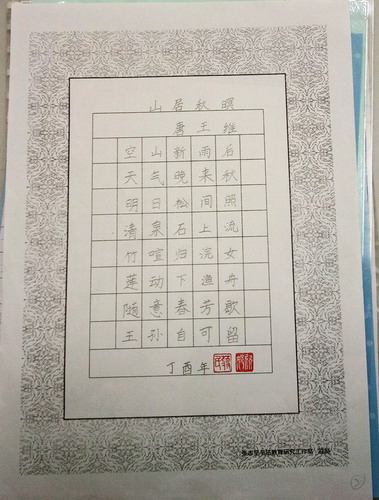 山居秋暝
唐王维
空山新雨后
天气晚来秋
明日松间照
清泉石上流
竹喧归浣女
莲动下渔舟
随意春芳歌
王孙自可留
丁酉年
书法教育研究工作室